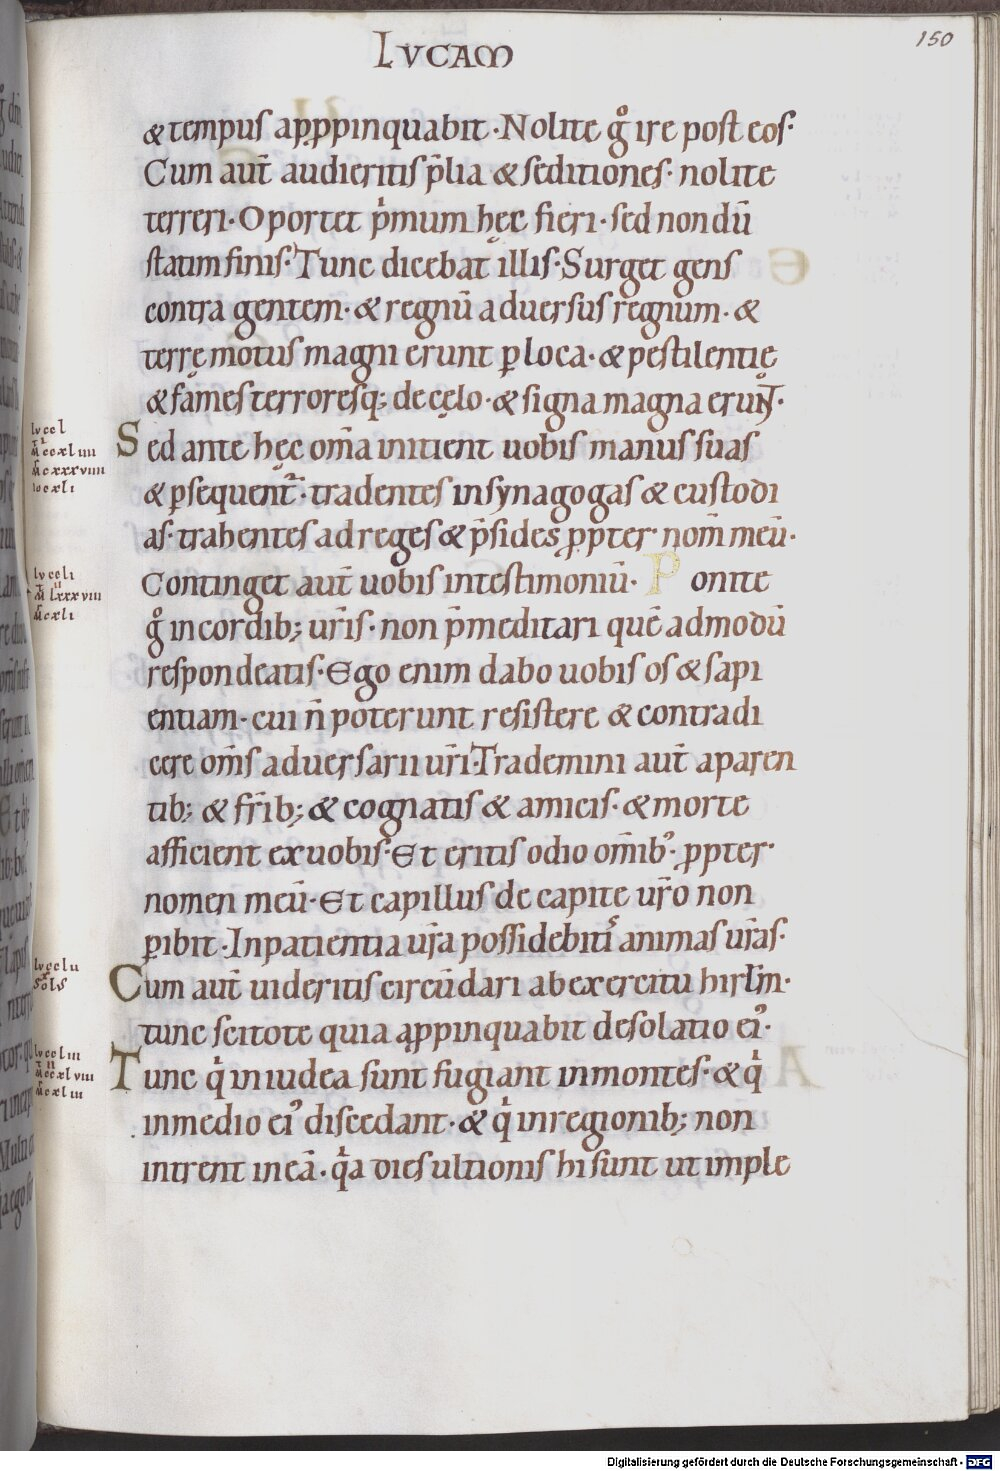 LVCAM
150
& tempus apppinquabit · Nolite g̊ ire post eos·
Cum aut̄ audieritis p̄lia & seditiones· nolite
terreri· Oportet p̍mum hęc fieri· sed nondū
statim finis· Tunc dicebat illis· Surget gens
contra gentem· & regnū aduersus regnum· &
terrę motus magni erunt ꝑ loca· & pestilentię
& fames terroresq; de cęlo· & signa magna erunt·
Sed ante hęc om̄a initient uobis manus suas
& ꝑsequent᷑· tradentes insynagogas & custodi
as· trahentes ad reges & p̄sides ꝓpter nom̄ meū·
Continget aut̄ uobis intestimoniū· Ponite
g̊ incordib; ur̄is· non p̄meditari quē admodū
respondeatis· Ego enim dabo uobis os & sapi
entiam· cui n̄ poterunt resistere & contradi
cere om̄s aduersarii ur̄i· Trademini aut̄ aparen
tib; & fr̄ib; & cognatis & amicis· & morte
afficient exuobis· Et eritis odio om̄ib᾽ ꝓpter
nomen meū· Et capillus de capite ur̄o non
ꝑibit· Inpatientia ur̄a possidebitis animas ur̄as·
Cum aut̄ uideritis circūdari abexercitu hirlm̄·
tunc scitote quia aꝓpinquabit desolatio ei᾽·
Tunc q̍ iniudea sunt fugiant inmontes· & q̍
inmedio ei᾽ discedant· & q̍ inregionib; non
intrent ineā· q̍a dies ultionis hi sunt ut imple
lvccl
m̄ ccxliiii
m̄c xxxviiii
io cxli
lvccli
m̄ lxxxviii
m̄cxli
lvcclii
sols
lvccliii
m̄ccxlviii
m̄cxliii
Digitalisierung gefördert durch die Deutsche Forschungsgemeinschaft - DFG